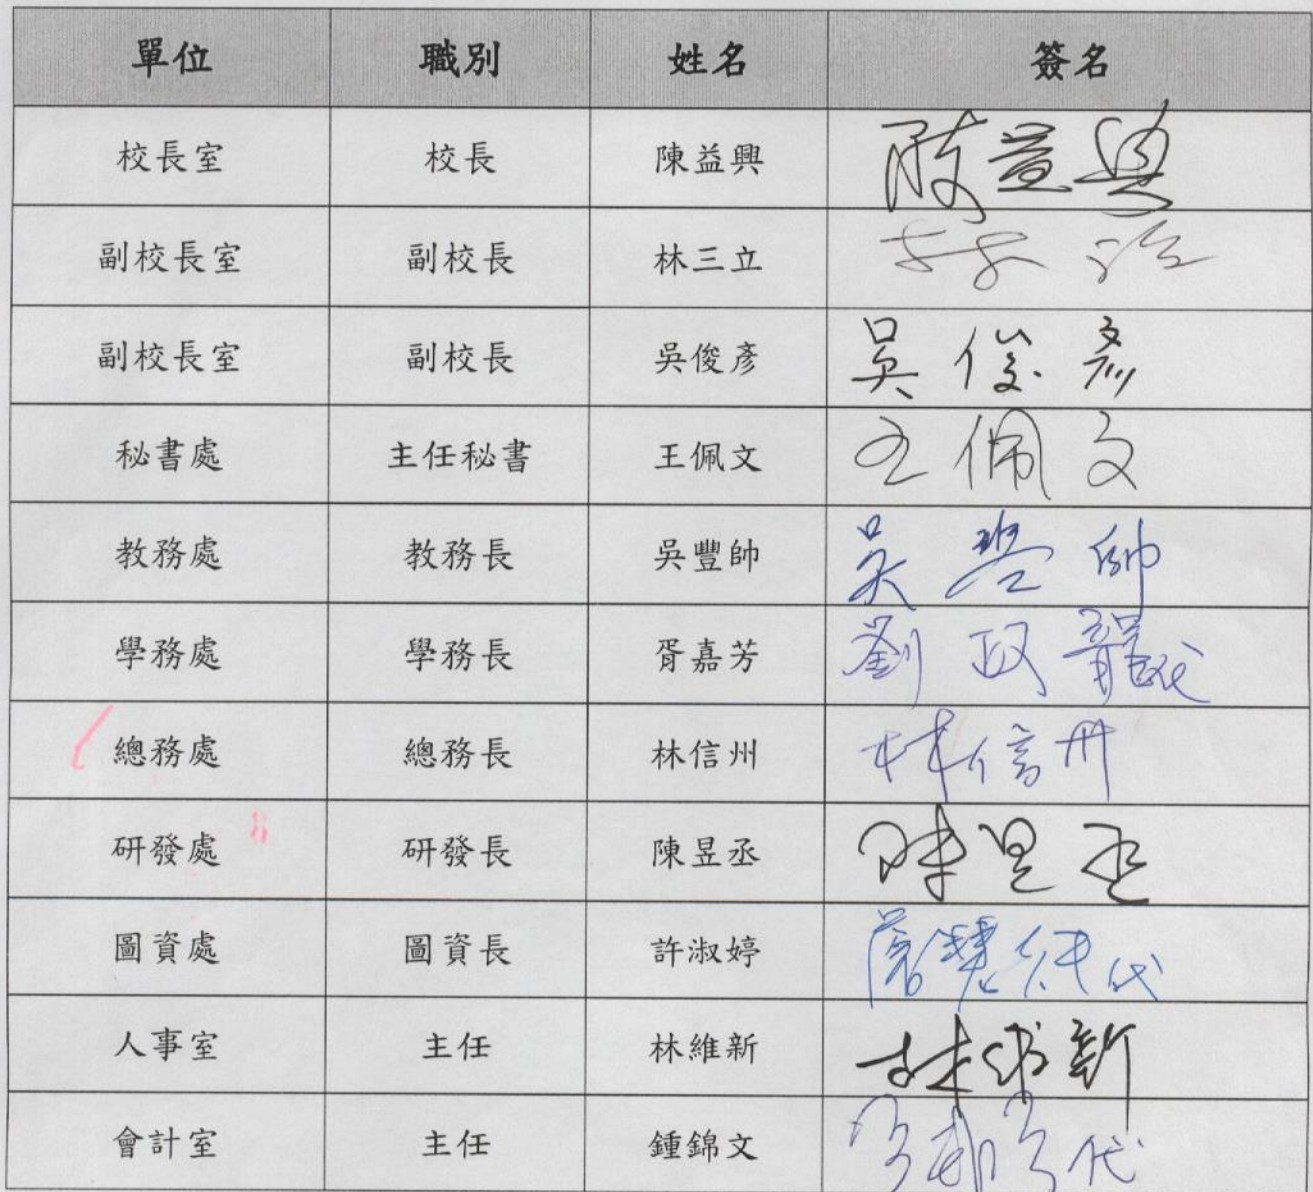 單位 職別 姓名 簽名
校長室 校長 陳益興 陳益興
副校長室 副校長 林三立 林三立
副校長室 副校長 吳俊彥 吳俊彥
秘書處 主任秘書 王佩文 王佩文
教務處 教務長 吳豐帥 吳豐帥
學務處 學務長 胥嘉芳 劉政龍代
總務處 總務長 林信州 林信州
研發處 研發長 陳昱丞 陳昱丞
圖資處 圖資長 許淑婷 代
人事室 主任 林維新 林維新
會計室 主任 鍾錦文 代